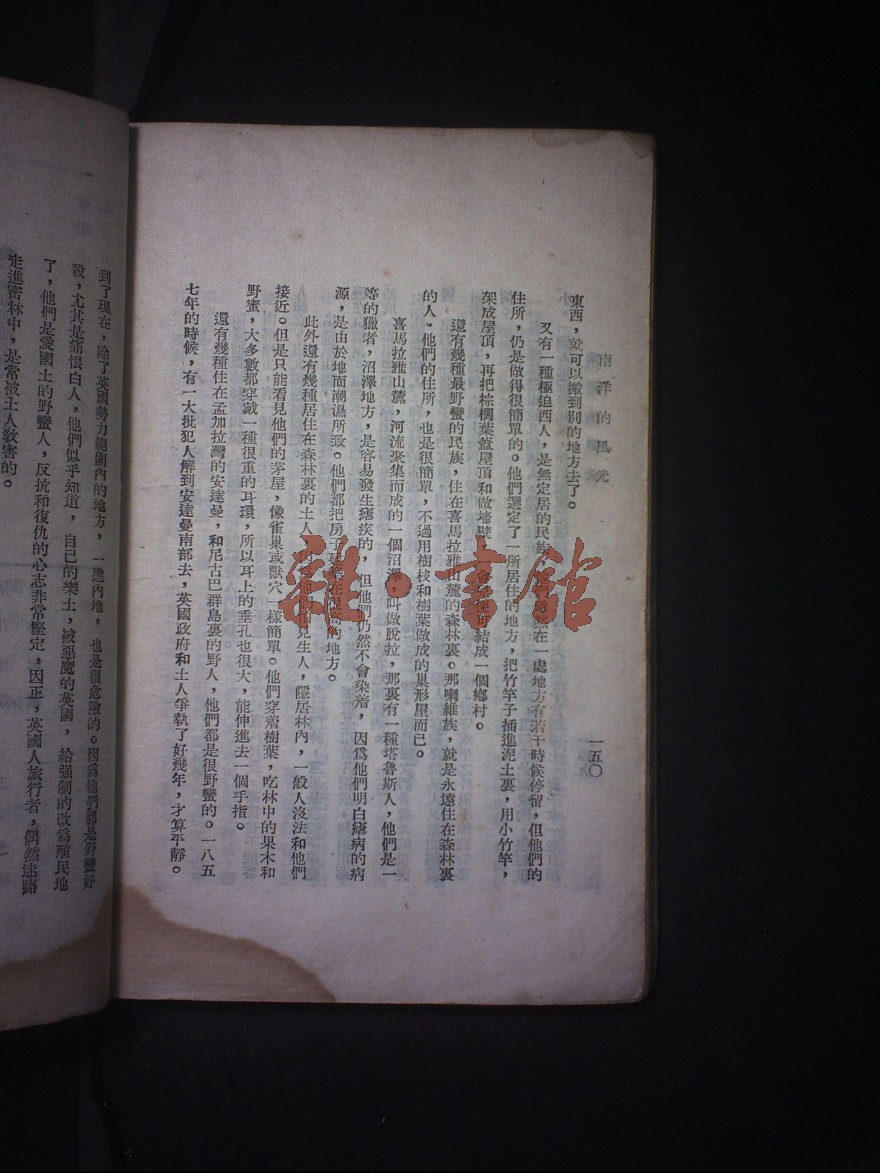 南洋的風光
一五〇
東西，就可以搬到別的地方去了。
又有一種極迫西人，是無定居的民族，他們在一處地方有若干時候停留，但他們的
住所，仍是做得很簡單的。他們選定了一所居住的地方，把竹竿子插進泥土裏，用小竹竿，
架成屋頂，再把棕櫚葉蓋屋頂和做墻壁，結成一個鄉村。
還有幾種最野蠻的民族，住在喜馬拉雅山麓的森林裏。那喇維族，就是永遠住在森林裏
的人。他們的住所，也是很簡單，不過用樹枝和樹葉做成的巢形屋而已。
喜馬拉雅山麓，河流聚集而成的一個沼澤，叫做脫拉，那裏有一種塔魯斯人，他們是一
等的獵者，沼澤地方，是容易發生瘧疾的，但他們仍然不會染着，因爲他們明白瘧病的病
源，是由於地面潮濕所致。他們都把房子的地方。
此外還有幾種居住在森林裏的土人，見生人，隱居林內，一般人沒法和他們
接近。但是只能看見他們的茅屋，像雀巢或獸穴一樣簡單。他們穿着樹葉，吃林中的果木和
野蜜，大多數都穿戴一種很重的耳環，所以耳上的垂孔也很大，能伸進去一個手指。
還有幾種住在孟加拉灣的安達曼，和尼古巴群島裏的野人，他們都是很野蠻的。一八五
七年的時候，有一大批犯人解到安達曼南部去，英國政府和土人爭執了好幾年，才算平靜。
到了現在，除了英國勢力範圍內的地方，一進內地，也是很危險的。因爲他們都是野蠻好
殺，尤其是痛恨白人，他們似乎知道，自己的樂土，被惡魔的英國，給强制的改爲殖民地
了，他們是愛國土的野蠻人，反抗和復仇的心志非常堅定，因正，英國人旅行者，偶然迷路
走進密林中，是常被土人殺害的。
雜·書館